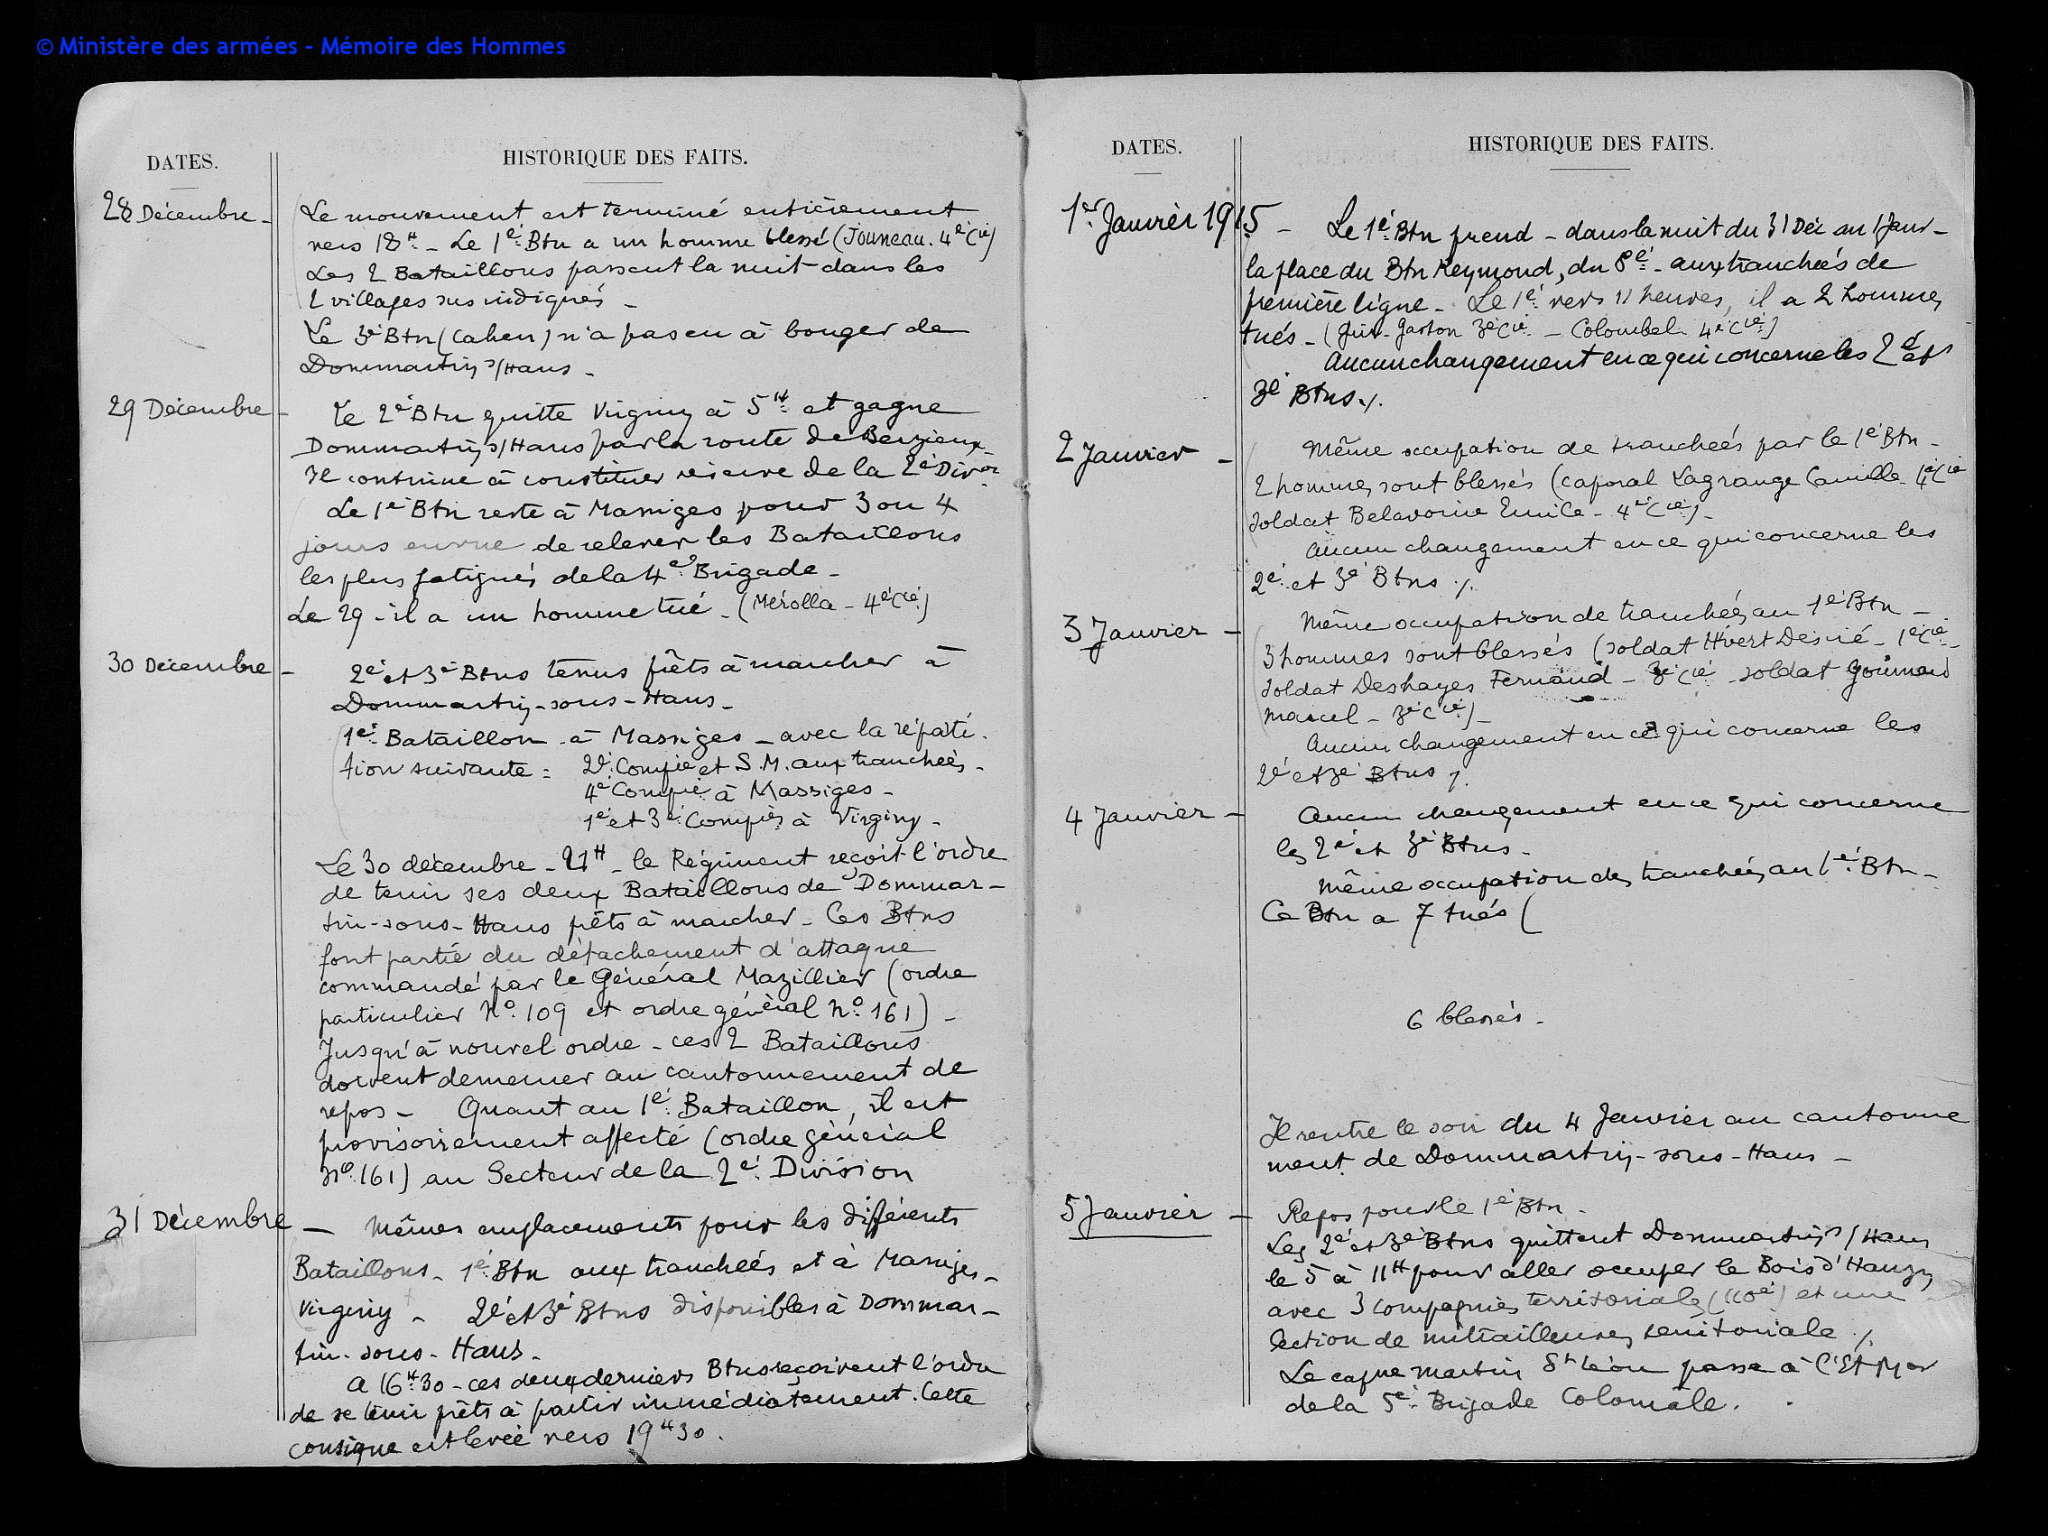 © Ministère des armées - Mémoire des Hommes
DATES.
HISTORIQUE DES FAITS.
28 Décembre -
Le mouvement est terminé entièrement
vers 18H - Le 1é Btn a un homme blessé (Jouneau. 4é Cie)
Les 2 Bataillons passent la nuit dans les
2 villages sus indiqués -
Le 3é Btn (Cahen) n'a pas eu à bouger de
Dommartin s/Hans -
29 Décembre -
Le 2é Btn quitte Virginy à 5H et gagne
Dommartin s/Hans par la route de Berzieux -
Il continue à constituer réserve de la 2é Divon
Le 1é Btn reste à Massiges pour 3 ou 4
jours en vue de relever les Bataillons
les plus fatigués de la 4é Brigade -
Le 29 - il a un homme tué - (Mérolla - 4é Cie)
30 Décembre -
2é et 3é Btns tenus prêts à marcher à
Dommartin-sous-Hans -
1é Bataillon à Massiges - avec la réparti-
tion suivante : 2é Compie et S.M. aux tranchées -
4é Compie à Massiges -
1é et 3é Compies à Virginy -
Le 30 décembre - 21H - le Régiment reçoit l'ordre
de tenir ses deux Bataillons de Dommar-
tin-sous-Hans prêts à marcher - Ces Btns
font partie du détachement d'attaque
commandé par le Général Mazillier (ordre
particulier No 109 et ordre général No 161) -
Jusqu'à nouvel ordre - ces 2 Bataillons
doivent demeurer au cantonnement de
repos - Quant au 1é Bataillon, il est
provisoirement affecté (ordre général
No 161) au Secteur de la 2é Division
31 Décembre -
Mêmes emplacements pour les différents
Bataillons - 1é Btn aux tranchées et à Massiges -
Virginy - 2é et 3é Btns disponibles à Dommar-
tin-sous-Hans -
A 16H30 - ces deux derniers Btns reçoivent l'ordre
de se tenir prêts à partir immédiatement. Cette
consigne est levée vers 19H30.
DATES.
HISTORIQUE DES FAITS.
1er Janvier 1915 -
Le 1é Btn prend - dans la nuit du 31 Déc au 1 Janv -
la place du Btn Reymond, du 8é - aux tranchées de
première ligne - Le 1é vers 11 heures, il a 2 hommes
tués - ( Gaston 3é Cie - Colombel 4é Cie)
Aucun changement en ce qui concerne les 2é et
3é Btns ./.
2 Janvier -
Même occupation de tranchées par le 1é Btn -
2 hommes sont blessés (caporal Lagrange Camille 4é Cie
soldat Belavoine Emile - 4é Cie) -
Aucun changement en ce qui concerne les
2é et 3é Btns ./.
3 Janvier -
Même occupation de tranchées au 1é Btn -
3 hommes sont blessés (soldat Hivert Désiré - 1é Cie -
soldat Deshayes Fernand - 3é Cie soldat
Marcel - 3é Cie) -
Aucun changement en ce qui concerne les
2é et 3é Btns ./.
4 Janvier -
Aucun changement en ce qui concerne
les 2é et 3é Btns -
Même occupation des tranchées au 1é Btn -
Ce Btn a 7 tués (
6 blessés -
Il rentre le soir du 4 Janvier au cantonne
ment de Dommartin-sous-Hans -
5 Janvier -
Repos pour le 1é Btn -
Les 2é et 3é Btns quittent Dommartin s/Hans
le 5 à 11H pour aller occuper le Bois d'Hauzy
avec 3 compagnies territoriales (110é) et une
Section de mitrailleuses territoriale ./.
Le capne Martin St Léon passe à l'Et-Mor
de la 5é Brigade Coloniale.